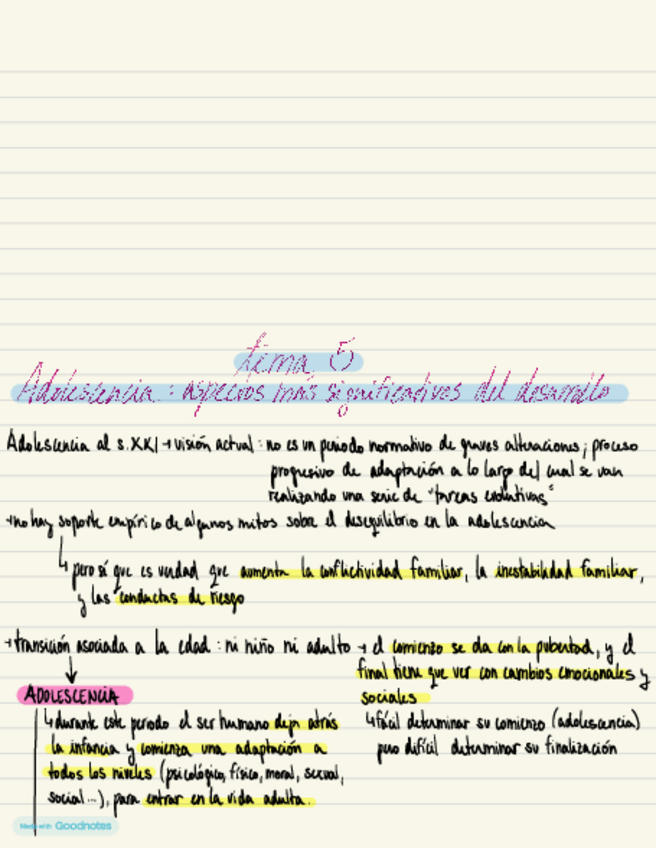 tema 5
Adolescencia : aspectos más significativos del desarrollo
Adolescencia al s.XXI → visión actual : no es un periodo normativo de graves alteraciones ; proceso
progresivo de adaptación a lo largo del cual se van
realizando una serie de "tareas evolutivas"
→ no hay soporte empírico de algunos mitos sobre el desequilibrio en la adolescencia
↳ pero sí que es verdad que aumenta la conflictividad familiar, la inestabilidad familiar,
y las conductas de riesgo
→ transición asociada a la edad : ni niño ni adulto → el comienzo se da con la pubertad, y el
final tiene que ver con cambios emocionales y
sociales
↳ fácil determinar su comienzo (adolescencia)
pero difícil determinar su finalización
ADOLESCENCIA
↳ durante este periodo el ser humano deja atrás
la infancia y comienza una adaptación a
todos los niveles (psicológico, físico, moral, sexual,
social...), para entrar en la vida adulta.
Made with Goodnotes